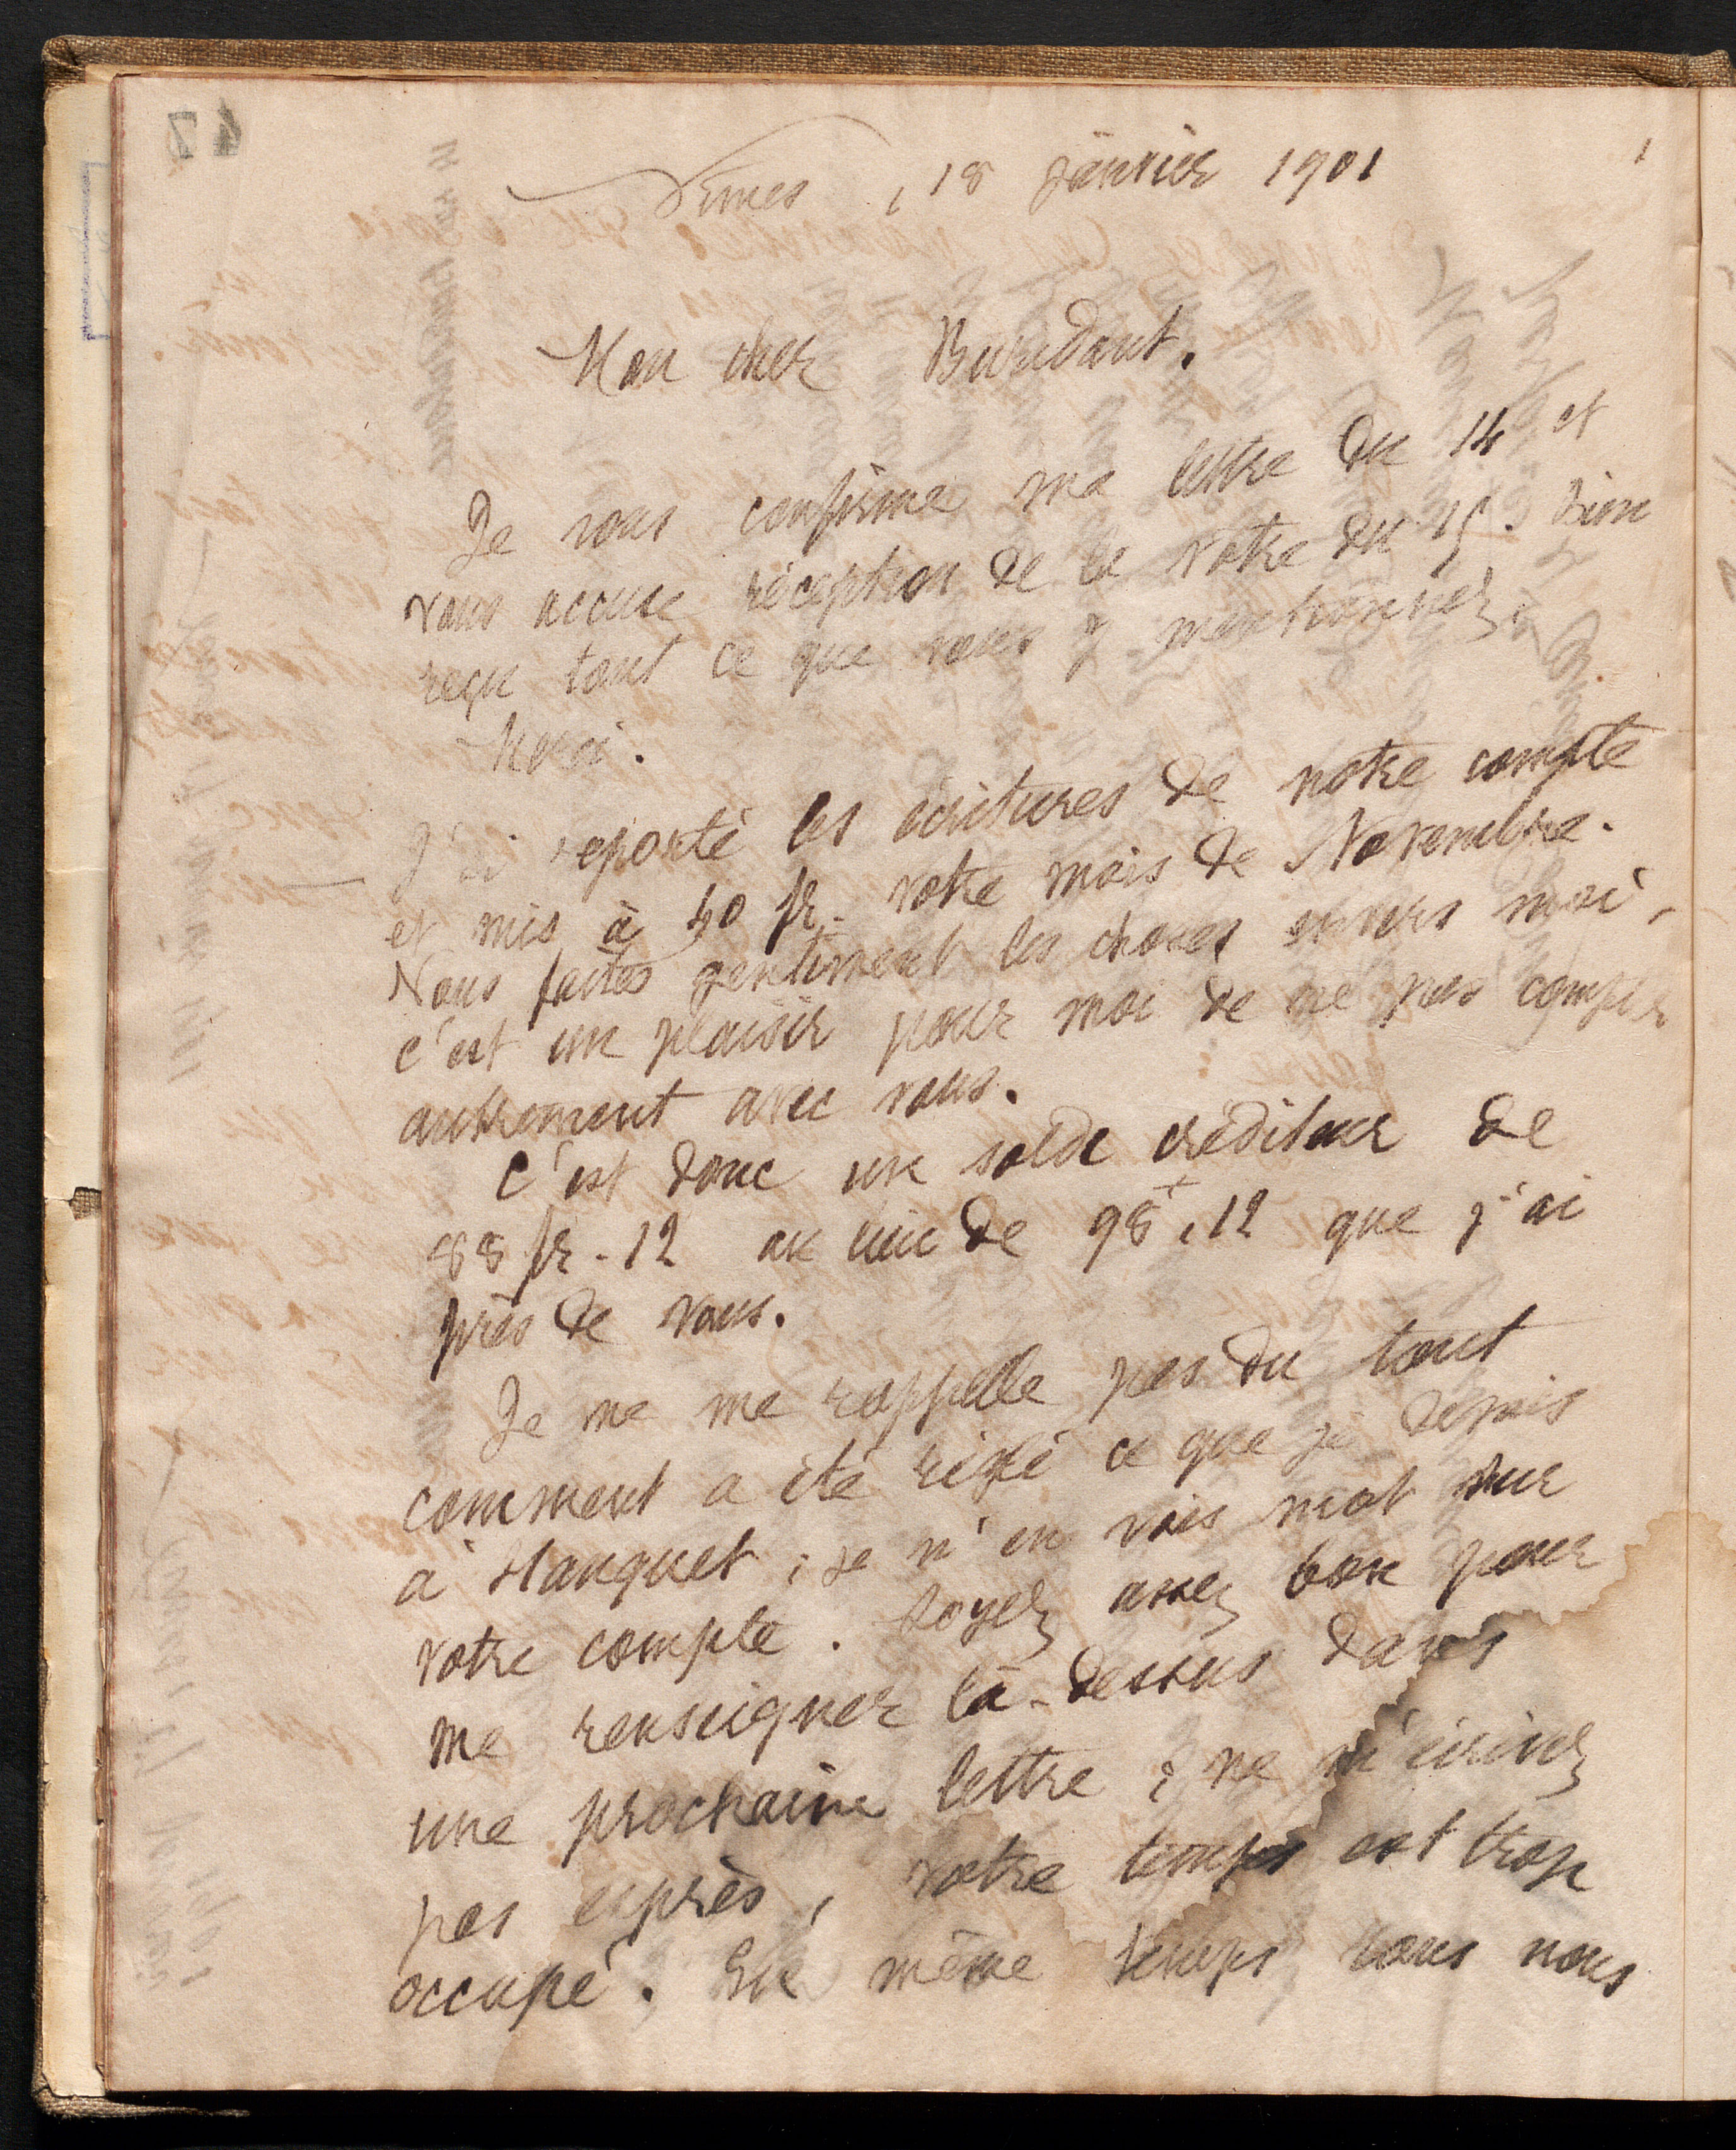 Nîmes, 18 Janvier 1901
1
Mon cher Buridant.
Je vous confirme ma lettre du 14 et
vous accuse réception de la vôtre du 15. Bien
reçu tout ce que vous y mentionnez.
Merci.
J'ai reporté les écritures de notre compte
et mis à 40 fr. votre mois de Novembre.
Vous faites gentiment les choses envers moi,
c'est un plaisir pour moi de ne pas compter
autrement avec vous.
C'est donc un solde créditeur de
88 fr. 12 au lieu de 98f,12 que j'ai
près de vous.
Je ne me rappelle pas du tout
comment a été réglé ce que je devais
à Hanquet ; je n'en vois mot sur
votre compte. Soyez assez bon pour
me renseigner là-dessus dans
une prochaine lettre ; ne m'écrivez
pas exprès, votre temps est trop
occupé. En même temps vous nous